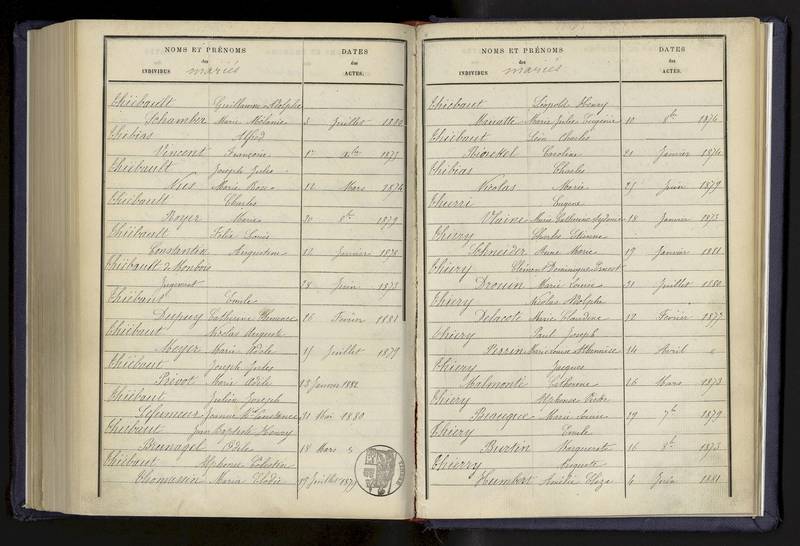 NOMS ET PRÉNOMS
des
INDIVIDUS mariés
DATES
des
ACTES.
Thiébault Guillaume Adolphe
Schamber Marie Mélanie 3 Juillet 1880
Thiébias Alfred
Vincent Françoise 1er 1875
Thiébault Joseph Jules
Nies Marie Rose 12 Mars 1874
Thiébault Charles
Royer Marie 30 8bre 1879
Thiébault Félix Louis
Constantin Augustine 12 Janvier 1878
Thiébault de Monbois
Jugement 28 Juin 1873
Thiébaut Emile
Dupuy Catherine Clémence 26 Février 1881
Thiébaut Nicolas Auguste
Meyer Marie Adèle 15 Juillet 1879
Thiébaut Joseph Jules
Privot Marie Adèle 12 Janvier 1882
Thiébaut Julien Joseph
Jeanne Constance 31 Mai 1880
Thiébaut Jean Baptiste Henry
Brunagel Odile 18 Mars
Thiébaut Alphonse Célestin
Thomassin Maria Elodie 19 Juillet
NOMS ET PRÉNOMS
des
INDIVIDUS mariés
DATES
des
ACTES.
Thiébaut Léopold Henry
Marie Julie Eugénie 10 8bre 1876
Thiébaut Léon Charles
Caroline 20 Janvier 1874
Thiébias Charles
Nicolas Marie 25 Juin 1879
Thierri Eugène
Vlaine Marie Catherine 18 Janvier 1873
Thiéry Charles Etienne
Schneider Anne Marie 19 Janvier 1881
Thiéry Clément Dominique Ernest
Drouin Marie Louise 21 Juillet 1880
Thiéry Nicolas Adolphe
Delacote Marie Claudine 12 Février 1877
Thiéry Paul Joseph
Perrin Marie Louise 14 Avril
Thiéry Jacques
Malmonté Catherine 16 Mars 1873
Thiéry Alphonse
Beauquel Marie Anne 19 7bre 1879
Thiéry Emile
Burtin Marguerite 16 8bre 1873
Thierry Auguste
Humbert Amélie Eliza 4 Juin 1881